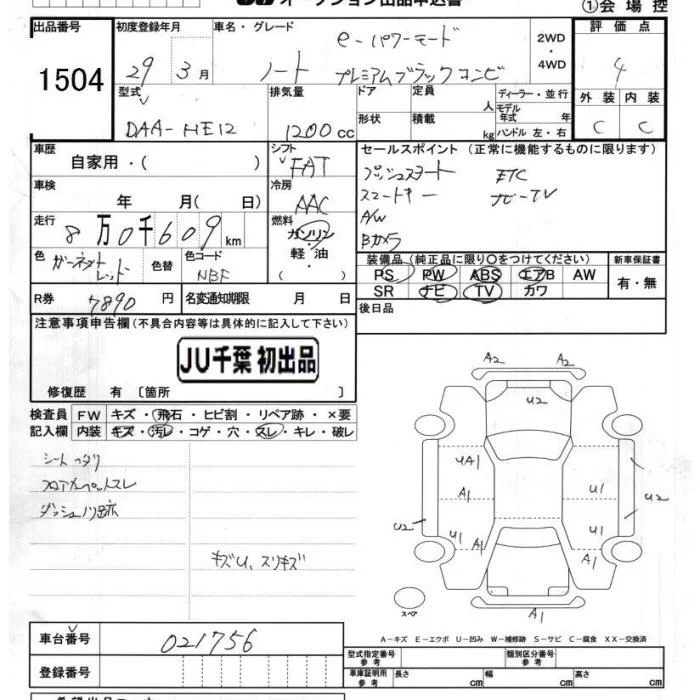 オークション出品申込書
①会場控
出品番号 初度登録年月 車名・グレード 2WD 評価点
1504 29 3月 ノート e-パワーモード プレミアムブラックコンビ ・ 4WD 4
型式 排気量 ドア 定員 人 ディーラー・並行 外装 内装
DAA-HE12 1200cc 形状 積載 kg モデル年式 年 C C
ハンドル 左・右
車歴 シフト セールスポイント (正常に機能するものに限ります)
自家用・( ) FAT プッシュスタート ETC
車検 冷房 スマートキー ナビーTV
年 月( 日) AAC A/W
走行 燃料 Bカメラ
8万0千609km ガソリン・軽油・( )
色 色替 色コード 装備品 (純正品に限り○をつけてください) 新車保証書
ガーネットレッド NBF PS PW ABS エアB AW 有・無
R券 7890円 名変通知期限 月 日 SR ナビ TV カワ
注意事項申告欄(不具合内容等は具体的に記入して下さい) 後日品
JU千葉 初出品
修復歴 有 〔箇所 〕
検査員 FW キズ・飛石・ヒビ割・リペア跡・×要
記入欄 内装 キズ・汚レ・コゲ・穴・スレ・キレ・破レ
シートヘタリ
フロアカーペットスレ
ダッシュノリ跡
キズU、スリキズ
A2 A2
U2
UA1
A1 U1 U2
U2 U1 A1 A1
A1
スペア
A-キズ E-エクボ U-凹み W-補修跡 S-サビ C-腐食 XX-交換済
車台番号 021756 型式指定番号 参考 類別区分番号 参考
登録番号 車庫証明用 参考 長さ cm 幅 cm 高さ cm